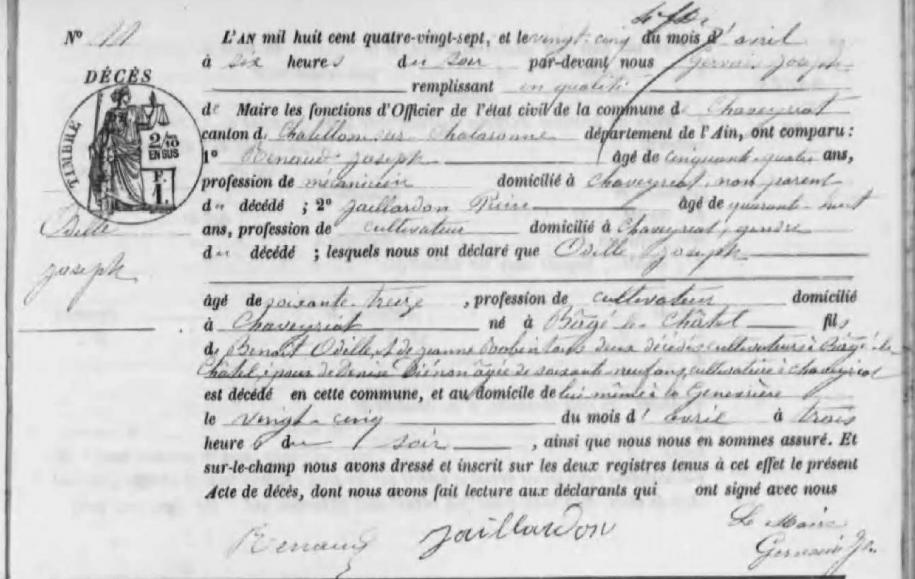 N° 11
L'AN mil huit cent quatre-vingt-sept, et le vingt-cinq du mois d'avril
à six heures du soir par-devant nous Gervais Joseph
remplissant en qualité
DÉCÈS
TIMBRE
2/10 EN SUS
F. 1.
de Maire les fonctions d'Officier de l'état civil de la commune de Chaveyriat
canton de Chatillon sur Chalaronne département de l'Ain, ont comparu :
1° Renaud Joseph âgé de cinquante-quatre ans,
profession de mécanicien domicilié à Chaveyriat, non parent
du décédé ; 2° Jaillardon Pierre âgé de quarante-huit
ans, profession de cultivateur domicilié à Chaveyriat, gendre
du décédé ; lesquels nous ont déclaré que Odille Joseph
Odille
Joseph
âgé de soixante-treize, profession de cultivateur domicilié
à Chaveyriat né à Bâgé-le-Châtel fils
de Benoît Odille, et de Jeanne Bobin tous deux décédés cultivateurs à Bâgé-le-
Châtel, époux de Denise agée de soixante-neuf ans, cultivatrice à Chaveyriat
est décédé en cette commune, et au domicile de lui même à la Genevrière
le vingt-cinq du mois d'avril à trois
heures du soir, ainsi que nous nous en sommes assuré. Et
sur-le-champ nous avons dressé et inscrit sur les deux registres tenus à cet effet le présent
Acte de décès, dont nous avons fait lecture aux déclarants qui ont signé avec nous
Renaud Jaillardon Le Maire
Gervais Jh